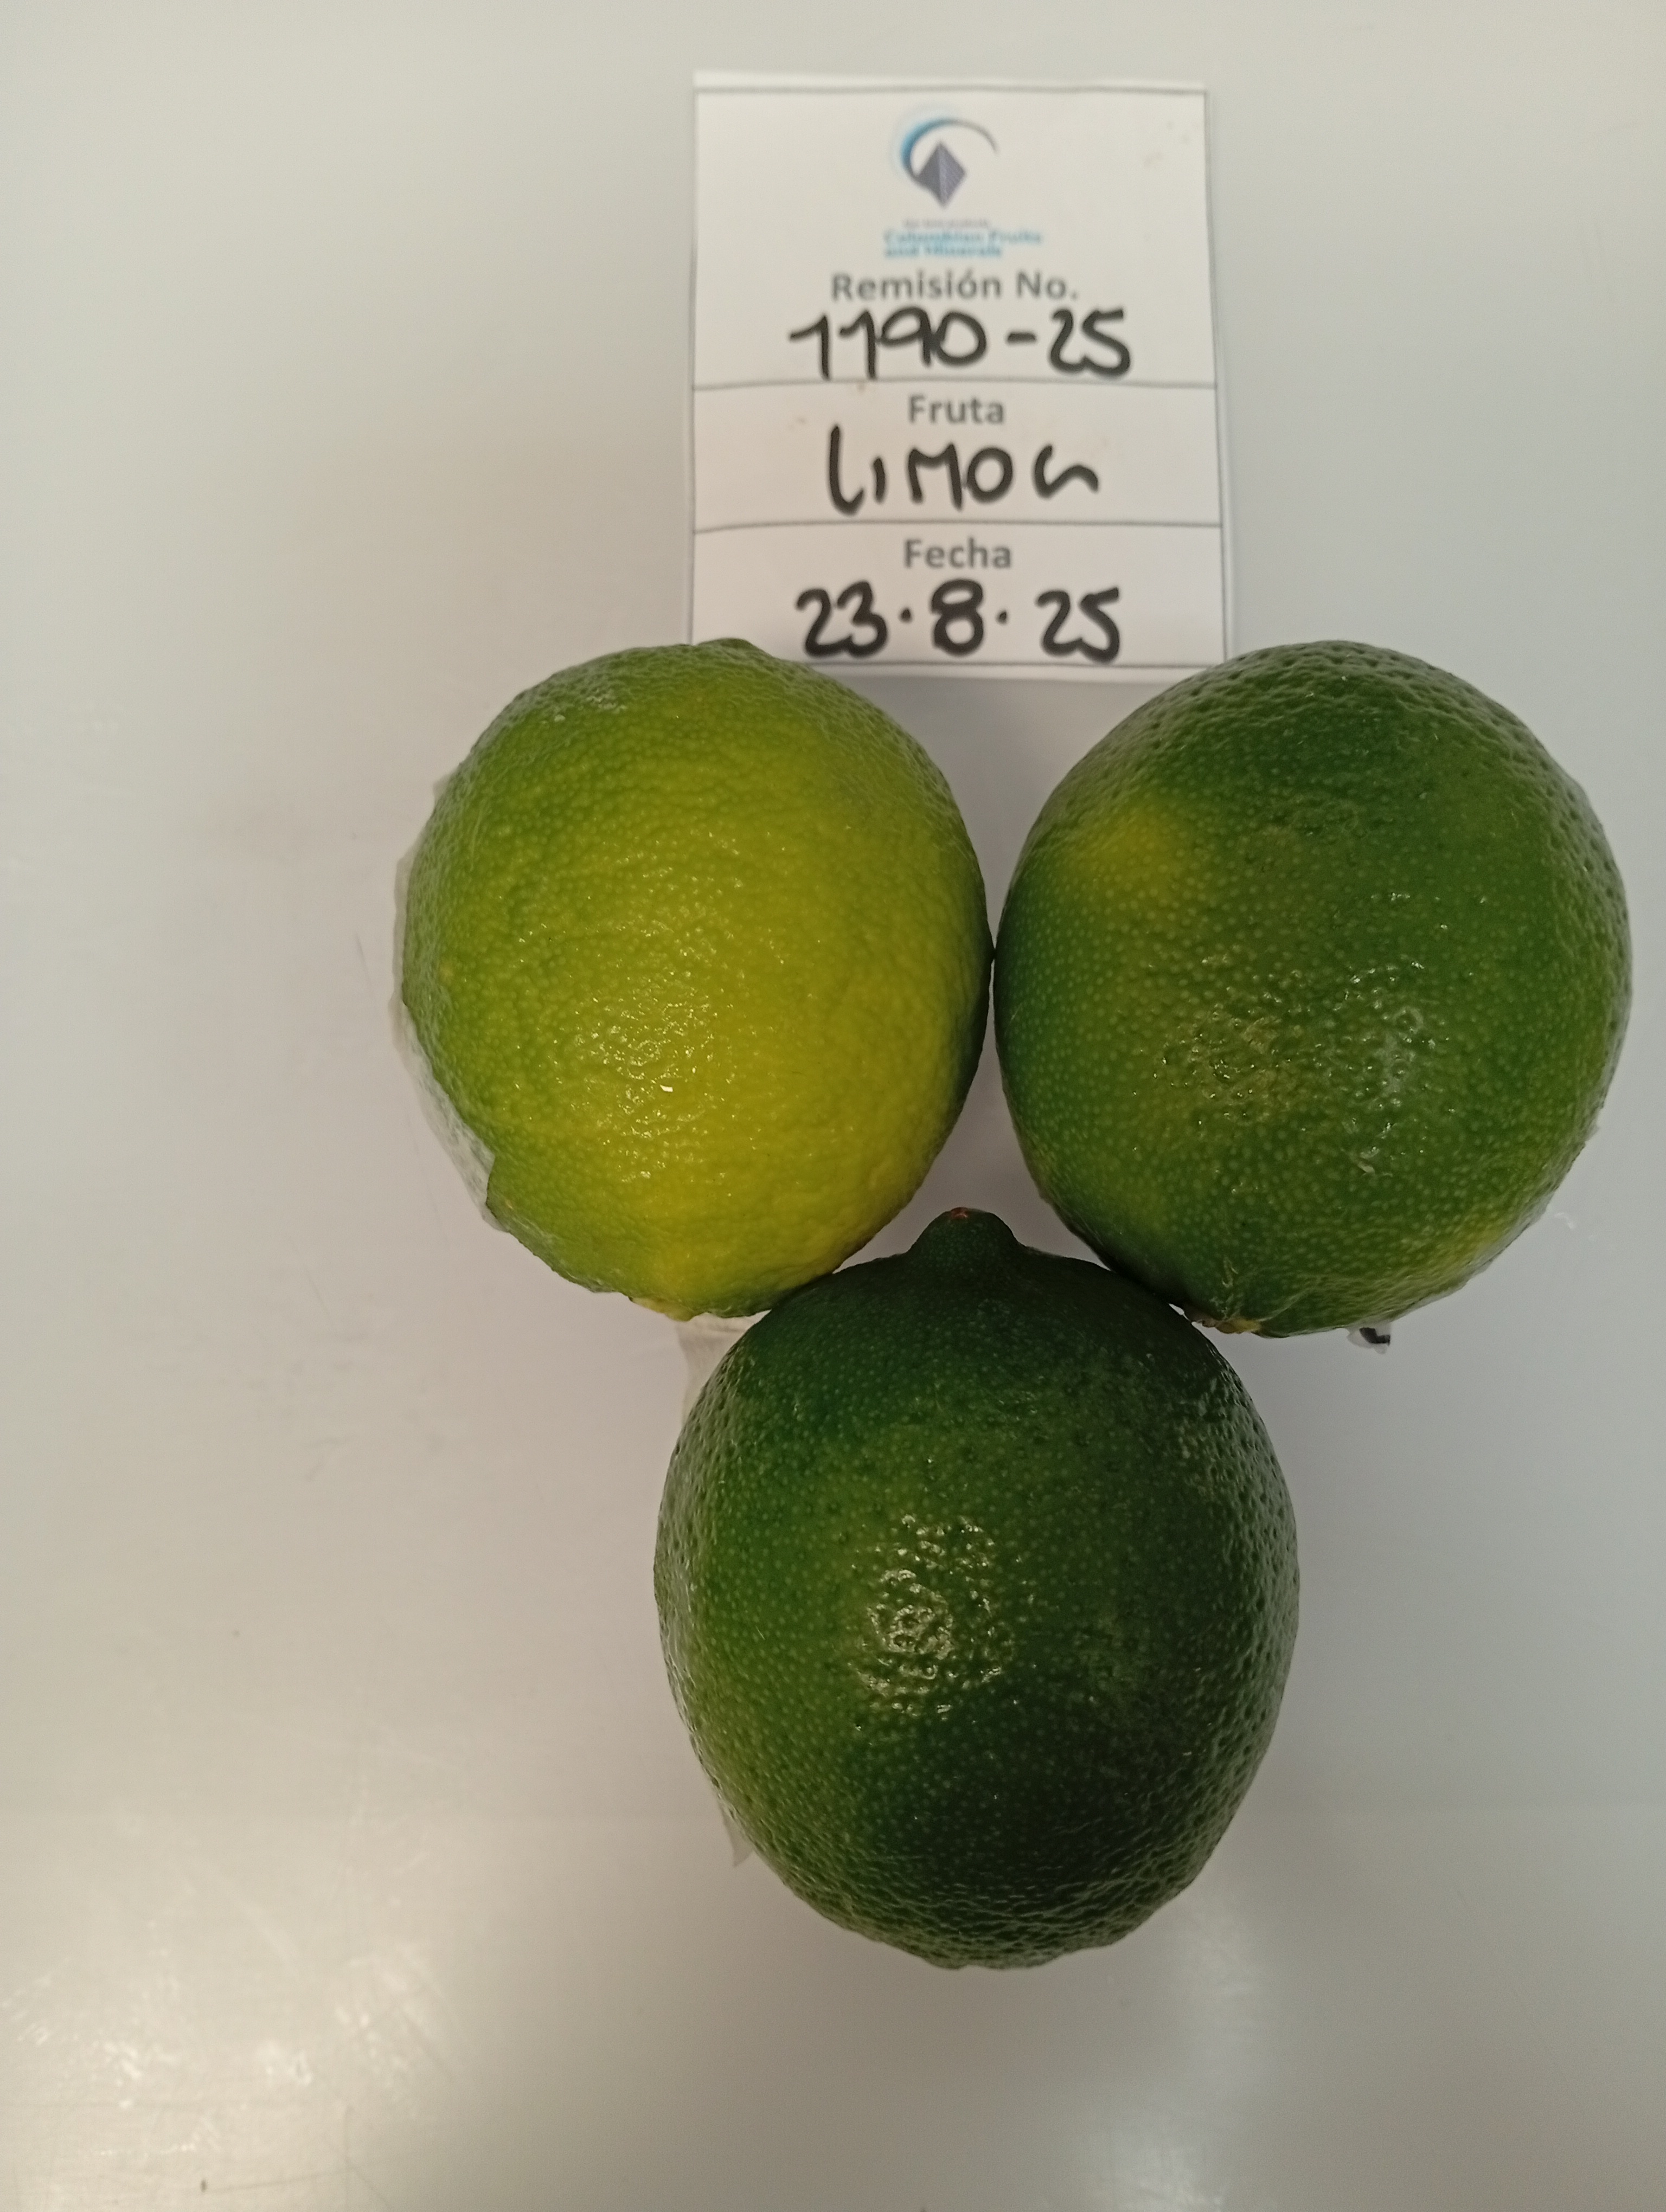 Colombian Fruits
and Minerals
Remisión No.
1190-25
Fruta
LIMON
Fecha
23.8.25